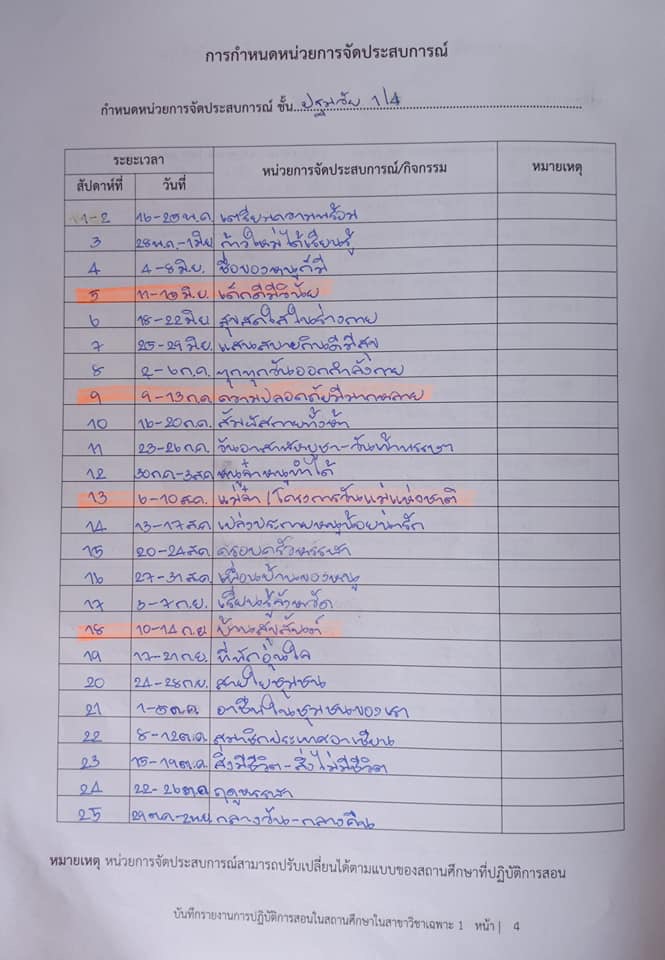 การกำหนดหน่วยการจัดประสบการณ์
กำหนดหน่วยการจัดประสบการณ์ ชั้น ปฐมวัย 1/4
ระยะเวลา หน่วยการจัดประสบการณ์/กิจกรรม หมายเหตุ
สัปดาห์ที่ วันที่
1-2 16-25 พ.ค. เตรียมความพร้อม
3 28 พ.ค.-1 มิย ก้าวใหม่ได้เรียนรู้
4 4-8 มิ.ย. ชื่อของหนูก็มี
5 11-15 มิ.ย. เด็กดีมีวินัย
6 18-22 มิย สุขสดใสในร่างกาย
7 25-29 มิย. แสนสบายกินดีมีสุข
8 2-6 ก.ค. ทุกทุกวันออกกำลังกาย
9 9-13 ก.ค ความปลอดภัยมีมากมาย
10 16-20 ก.ค. สัมผัสกายทั้งห้า
11 23-26 ก.ค. วันอาสาฬหบูชา-วันเข้าพรรษา
12 30 ก.ค-3 ส.ค หนูจ๋าหนูทำได้
13 6-10 ส.ค. แม่จ๋า / โครงการวันแม่แห่งชาติ
14 13-17 ส.ค เปล่งประกายหนูน้อยน่ารัก
15 20-24 ส.ค ครอบครัวหรรษา
16 27-31 ส.ค. เพื่อนบ้านของหนู
17 3-7 ก.ย. เรียนรู้จังหวัด
18 10-14 ก.ย. บ้านสุขสันต์
19 17-21 ก.ย. ที่พักอุ่นใจ
20 24-28 ก.ย. สายใยชุมชน
21 1-5 ต.ค. อาชีพในชุมชนของเรา
22 8-12 ต.ค. สมาชิกประเทศอาเซียน
23 15-19 ต.ค. สิ่งมีชีวิต-สิ่งไม่มีชีวิต
24 22-26 ต.ค ฤดูหรรษา
25 29 ต.ค-2 พย. กลางวัน-กลางคืน
หมายเหตุ หน่วยการจัดประสบการณ์สามารถปรับเปลี่ยนได้ตามแบบของสถานศึกษาที่ปฏิบัติการสอน
บันทึกรายงานการปฏิบัติการสอนในสถานศึกษาในสาขาวิชาเฉพาะ 1 หน้า | 4